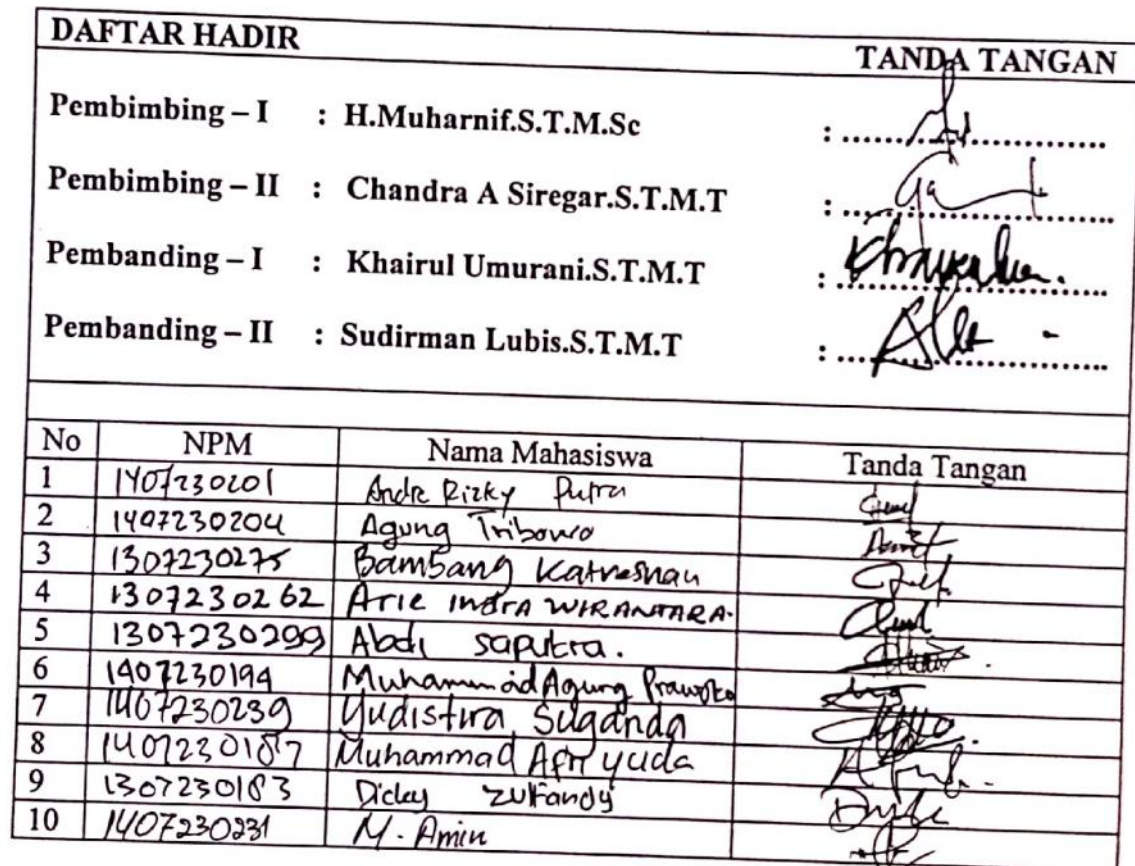 DAFTAR HADIR TANDA TANGAN
Pembimbing – I : H.Muharnif.S.T.M.Sc : ....................
Pembimbing – II : Chandra A Siregar.S.T.M.T : ....................
Pembanding – I : Khairul Umurani.S.T.M.T : ....................
Pembanding – II : Sudirman Lubis.S.T.M.T : ....................
No NPM Nama Mahasiswa Tanda Tangan
1 1407230201 Andre Rizky Putra
2 1407230204 Agung Tribowo
3 1307230275 Bambang
4 1307230262 Arie INDRA WIRANTARA.
5 1307230299 Abdi saputra.
6 1407230194 Muhammad Agung
7 1407230239 Yudistira Suganda
8 1407230187 Muhammad Afri yuda
9 1307230183 Dicky Zulfandy
10 1407230231 M. Amin